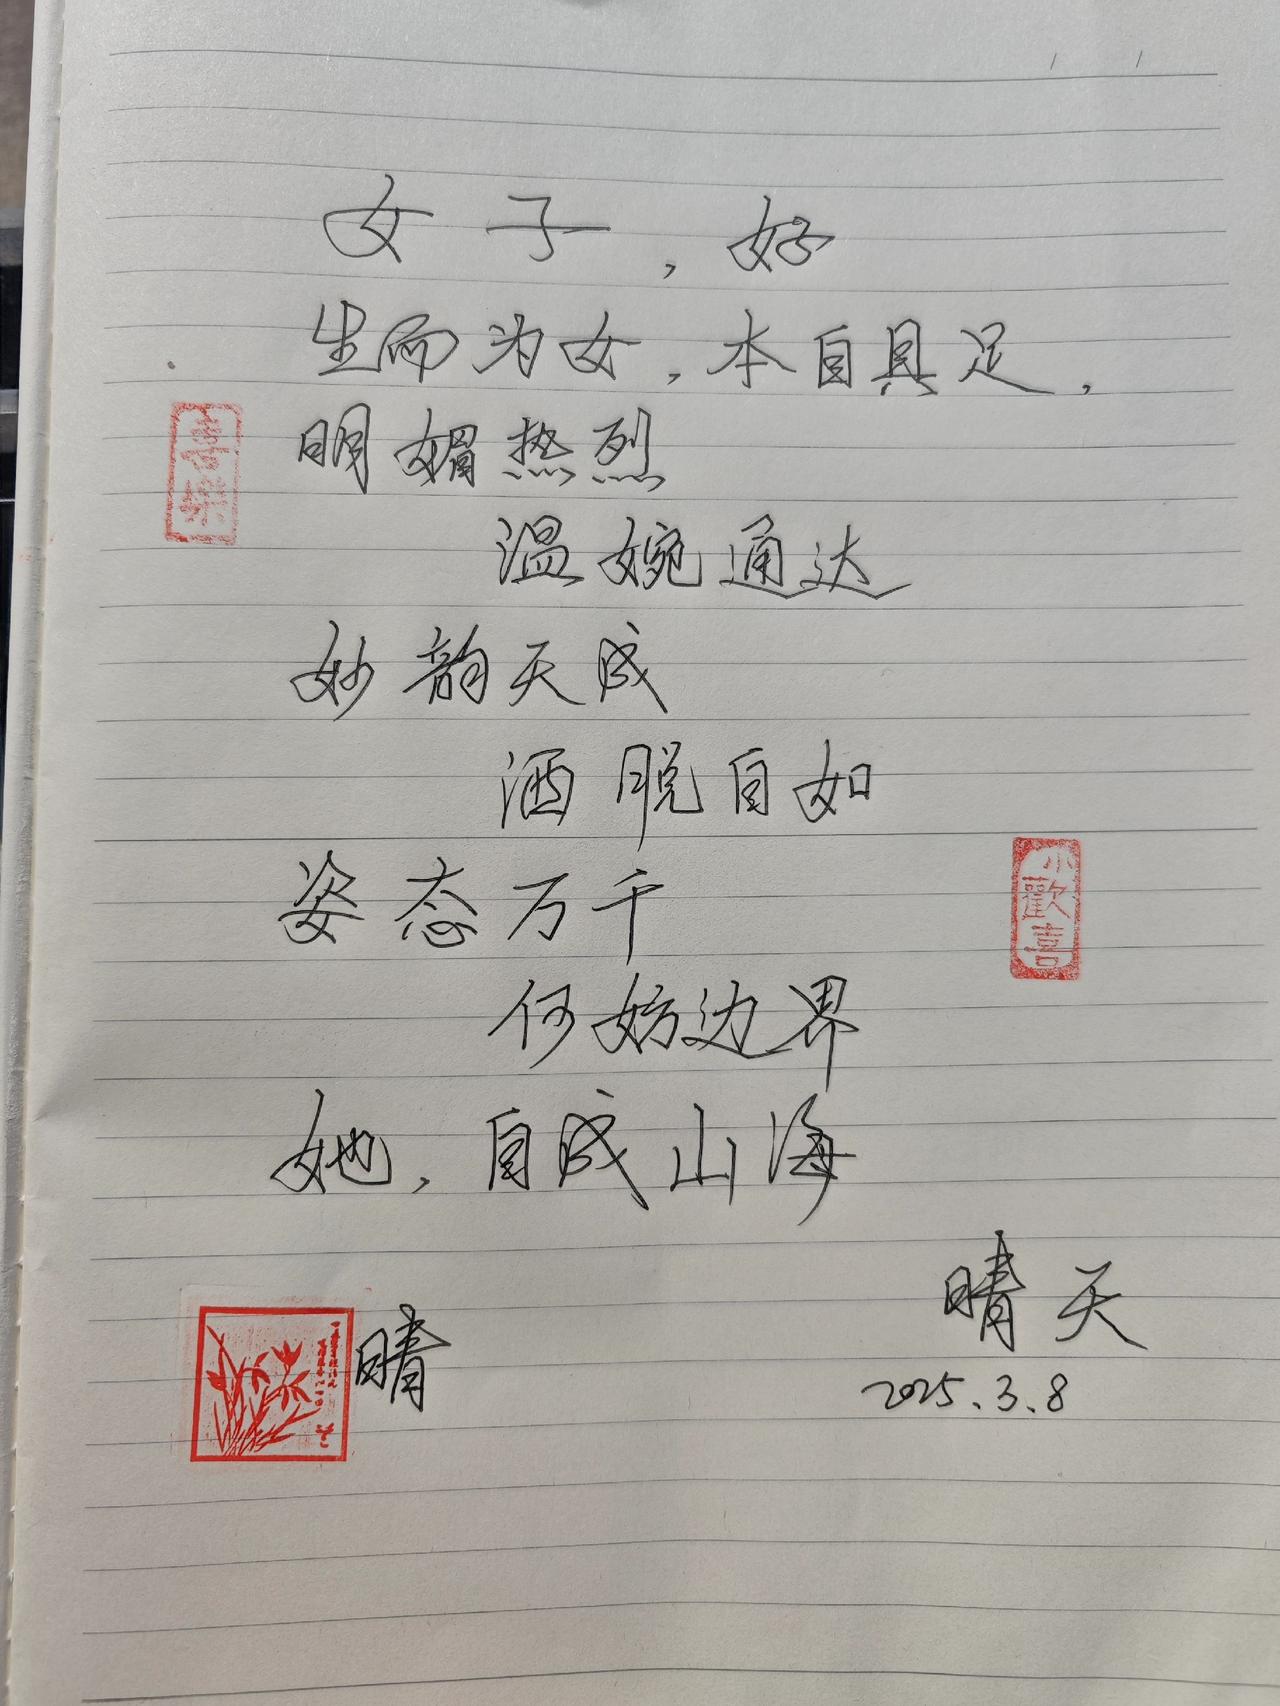 女子，好
生而为女，本自具足，
明媚热烈
温婉通达
妙韵天成
洒脱自如
姿态万千
何妨边界
她，自成山海
晴天
2025.3.8
晴
喜樂
小歡喜